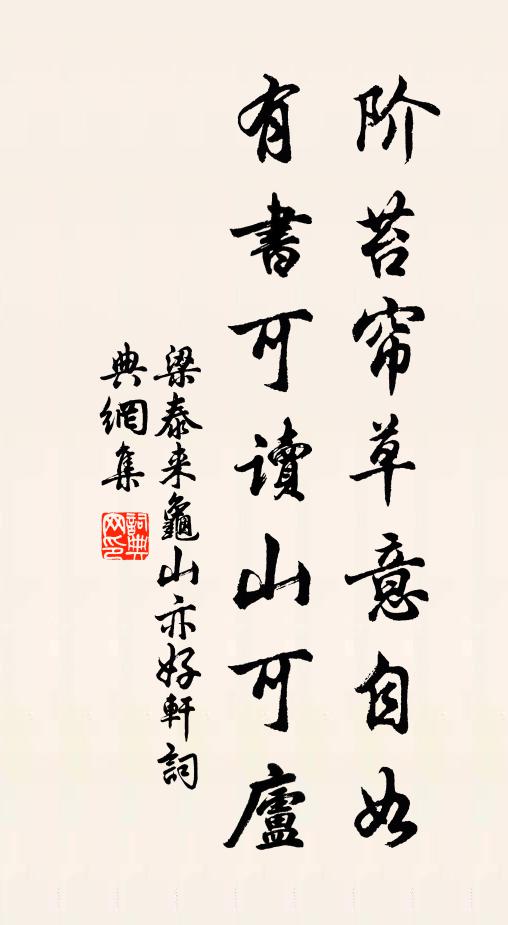 阶苔帘草意自如
有書可讀山可廬
梁泰来龜山亦好軒詞
典網集
詞典网印